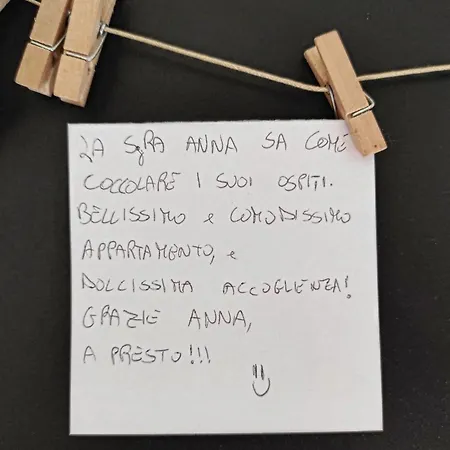 LA SgRA ANNA SA COME
COCCOLARE I SUOI OSPITI.
BELLISSIMO e COMODISSIMO
APPARTAMENTO, e
DOLCISSIMA ACCOGLIENZA!
GRAZIE ANNA,
A PRESTO!!!